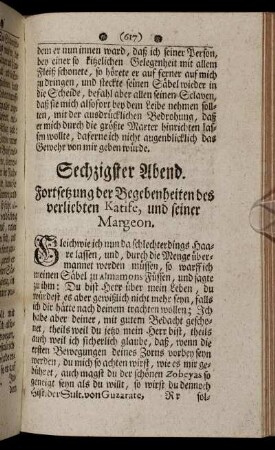 (617)
dem er nun innen ward, daß ich seiner Person,
bey einer so kitzlichen Gelegenheit mit allem
Fleiß schonete, so hörete er auf ferner auf mich
zu dringen, und steckte seinen Säbel wieder in
die Scheide, befahl aber allen seinen Sclaven,
daß sie mich alsofort bey dem Leibe nehmen soll-
ten, mit der ausdrücklichen Bedrohung, daß
er mich durch die größte Marter hinrichten las-
sen wollte, daferne ich nicht augenblicklich das
Gewehr von mir geben würde.
Sechzigster Abend.
Fortsetzung der Begebenheiten des
verliebten Katife, und seiner
Margeon.
Gleichwie ich nun da schlechterdings Haa-
re lassen, und, durch die Menge über-
mannet werden müssen, so warff ich
meinen Säbel zu Almamons Füssen, und sagte
zu ihm: Du bist Herr über mein Leben, du
würdest es aber gewißlich nicht mehr seyn, falls
ich dir hätte nach deinem trachten wollen; Ich
habe aber deiner, mit gutem Bedacht gescho-
net, theils weil du jetzo mein Herr bist, theils
auch weil ich sicherlich glaube, daß, wenn die
ersten Bewegungen deines Zorns vorbey seyn
werden, du mich so achten wirst, wie es mir ge-
bühret, auch magst du der schönen Zobeyas so
geneigt seyn als du willt, so wirst du dennoch
Hist. der Sult. von Guzarate, R r sol-